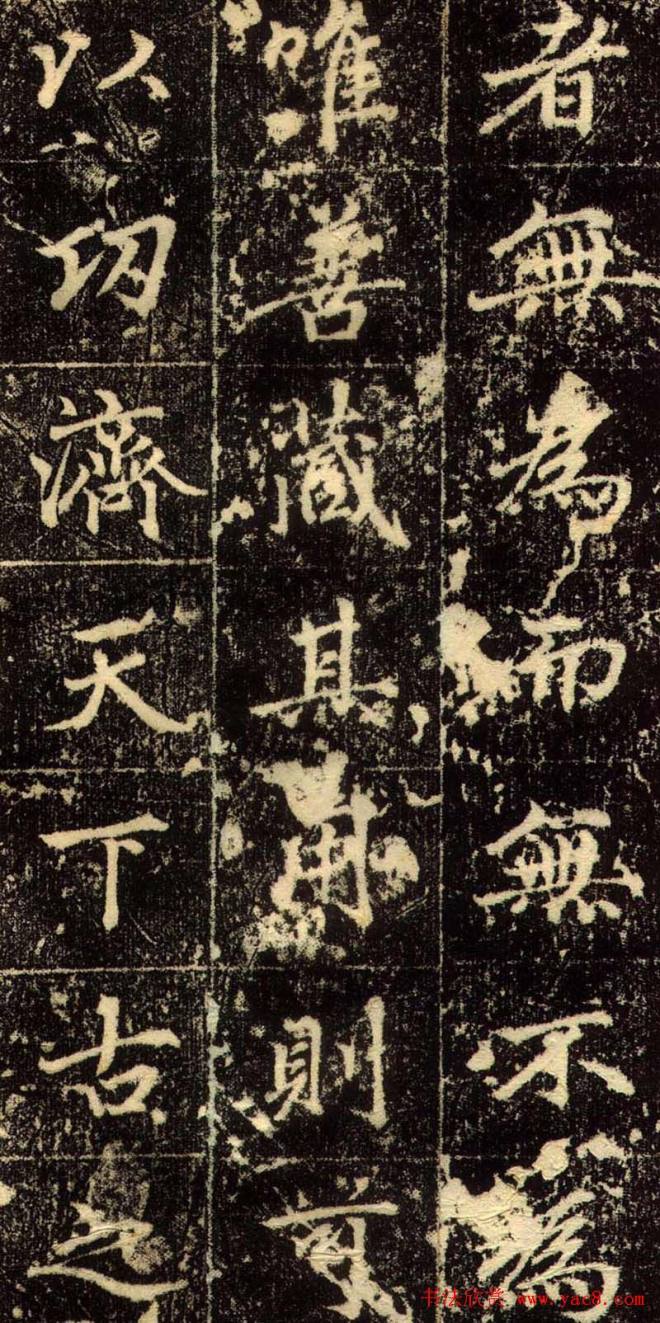 者無為而無不為
唯善藏其用則可
以功濟天下古之
书法欣赏 www.yac8.com